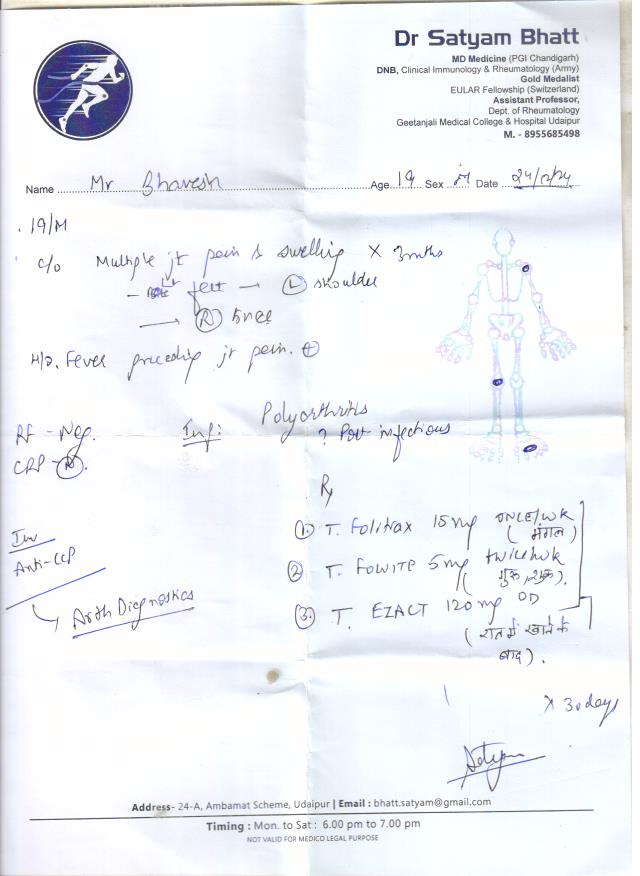 Dr Satyam Bhatt
MD Medicine (PGI Chandigarh)
DNB, Clinical Immunology & Rheumatology (Army)
Gold Medalist
EULAR Fellowship (Switzerland)
Assistant Professor,
Dept. of Rheumatology
Geetanjali Medical College & Hospital Udaipur
M. - 8955685498
Name Mr Bhavesh Age 19 Sex M Date
19/M
c/o Multiple jt pain & swelling X 3mths
- feet → (L) shoulder
→ (R) knee
H/o. Fever preceding jt pain. +
RF - Neg.
CRP - (N).
Imp: Polyarthritis
? Post infectious
Inv
Anti-CCP
Arth Diagnostics
Rx
1. T. Folitrax 15mg ONCE/WK
(मंगल)
2. T. FOLVITE 5mg twice/wk
(गुरु, शुक्र).
3. T. EZACT 120mg OD
(रात में खाने के
बाद).
X 30 days
Address- 24-A, Ambamat Scheme, Udaipur | Email : bhatt.satyam@gmail.com
Timing : Mon. to Sat : 6.00 pm to 7.00 pm
NOT VALID FOR MEDICO LEGAL PURPOSE